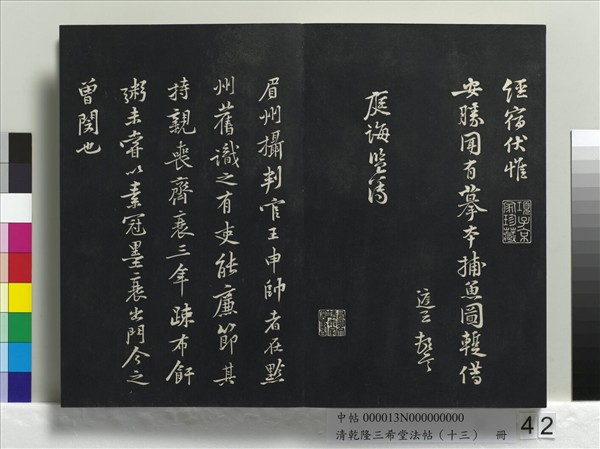 經宿伏惟
安勝聞有摹本捕魚圖輙借
庭堅頓首
眉州攝判官王申師者在黔
州舊識之有吏能廉節其
持親喪齊衰三年疎布飦
粥未嘗以素冠墨衰出門今之
曾閔也
項子京
家珍藏
中帖 000013N000000000
清乾隆三希堂法帖（十三） 冊 42